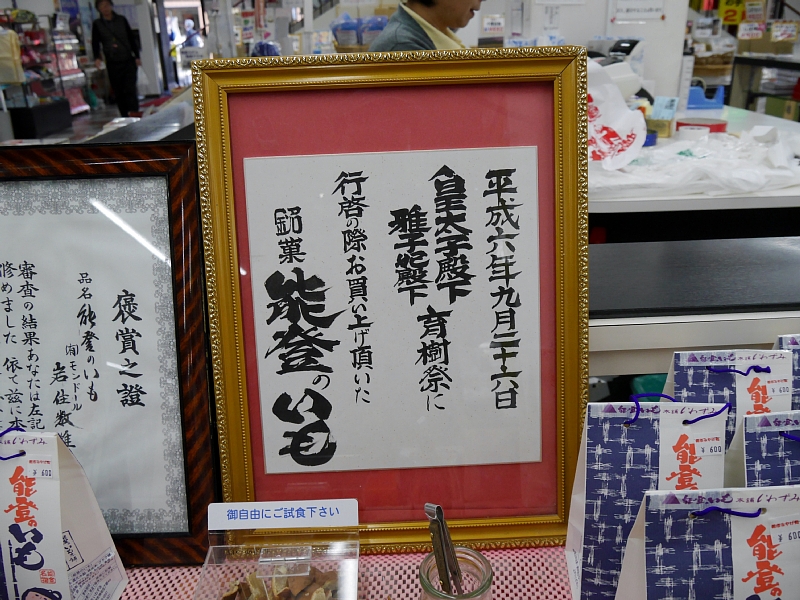 平成六年九月二十六日
皇太子殿下
雅子妃殿下
育樹祭に
行啓の際お買い上げ頂いた
銘菓 能登のいも
褒賞之證
品名 能登のいも
㈲モンドール
審査の結果あなたは左記
修めました 依て茲に本
御自由にご試食下さい
¥600
能登のいも
¥600
能登
¥600
能登の
¥600
能登の